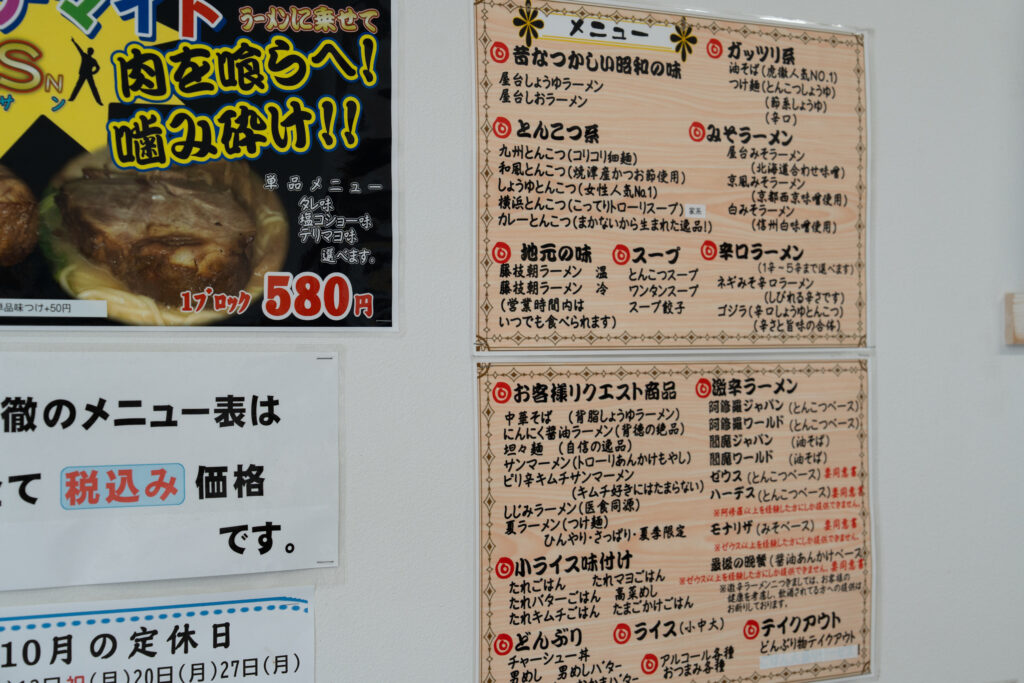 ラーメンに乗せて
肉を喰らへ!
噛み砕け!!
サン
単品メニュー
タレ味
塩コショー味
テリマヨ味
選べます。
1ブロック 580円
単品味つけ+50円
徹のメニュー表は
て 税込み 価格
です。
10月の定休日
祝(月)20日(月)27日(月)
メニュー
昔なつかしい昭和の味
屋台しょうゆラーメン
屋台しおラーメン
とんこつ系
九州とんこつ(コリコリ細麺)
和風とんこつ(焼津産かつお節使用)
しょうゆとんこつ(女性人気No.1)
横浜とんこつ(こってりトローリスープ) 家系
カレーとんこつ(まかないから生まれた逸品!)
地元の味
藤枝朝ラーメン 温
藤枝朝ラーメン 冷
(営業時間内は
いつでも食べられます)
スープ
とんこつスープ
ワンタンスープ
スープ餃子
ガッツリ系
油そば(虎徹人気NO.1)
つけ麺(とんこつしょうゆ)
(節系しょうゆ)
(辛口)
みそラーメン
屋台みそラーメン
(北海道合わせ味噌)
京風みそラーメン
(京都西京味噌使用)
白みそラーメン
(信州白味噌使用)
辛口ラーメン
(1辛~5辛まで選べます)
ネギみそ辛ラーメン
(しびれる辛さです)
ゴジラ(辛口しょうゆとんこつ)
(辛さと旨味の合体)
お客様リクエスト商品
中華そば (背脂しょうゆラーメン)
にんにく醤油ラーメン(背徳の絶品)
坦々麺 (自信の逸品)
サンマーメン(トローリあんかけもやし)
ピリ辛キムチサンマーメン
(キムチ好きにはたまらない)
しじみラーメン(医食同源)
夏ラーメン(つけ麺)
ひんやり・さっぱり・夏季限定
小ライス味付け
たれごはん たれマヨごはん
たれバターごはん 高菜めし
たれキムチごはん たまごかけごはん
どんぶり
チャーシュー丼
男めし 男めしバター
ライス(小中大)
アルコール各種
おつまみ各種
激辛ラーメン
阿修羅ジャパン(とんこつベース)
阿修羅ワールド(とんこつベース)
閻魔ジャパン (油そば)
閻魔ワールド (油そば)
ゼウス(とんこつベース) 要同意書
ハーデス(とんこつベース) 要同意書
※阿修羅以上を経験した方にしか提供できません。
モナリザ(みそベース) 要同意書
※ゼウス以上を経験した方にしか提供できません。
最後の晩餐(醤油あんかけベース
※ゼウス以上を経験した方にしか提供できません。要同意書
※激辛ラーメンにつきましては、お客様の
健康を考慮し、飲酒されてる方への提供は
お断りしております。
テイクアウト
どんぶり物テイクアウト